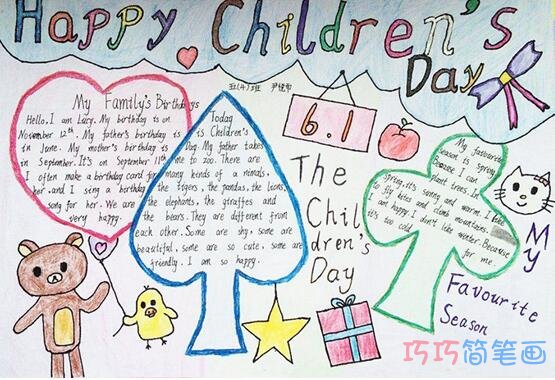 Happy Children's
Day
My Family's Birthdays
Hello, I am Lucy. My birthday is on
November 12th. My father's birthday is
in June. My mother's birthday is
in September. It's on September 11th
I often make a birthday card for
her. and I sing a birthday
song for her. We are
very happy.
Today
is Children's
Day. My father takes
me to zoo. There are
many kinds of animals,
the tigers, the pandas, the lions,
the elephants, the giraffes and
the bears. They are different from
each other. Some are shy, some are
beautiful, some are so cute, some are
friendly. I am so happy.
6.1
The
Chil
dren's
Day
My favourite
season is spring
Because I can
plant trees. In
spring, it's sunny and warm. I like
to fly kites and climb mountains.
I am happy. I don't like winter. Because
it's too cold for me.
My
Favourite
Season
巧巧简笔画